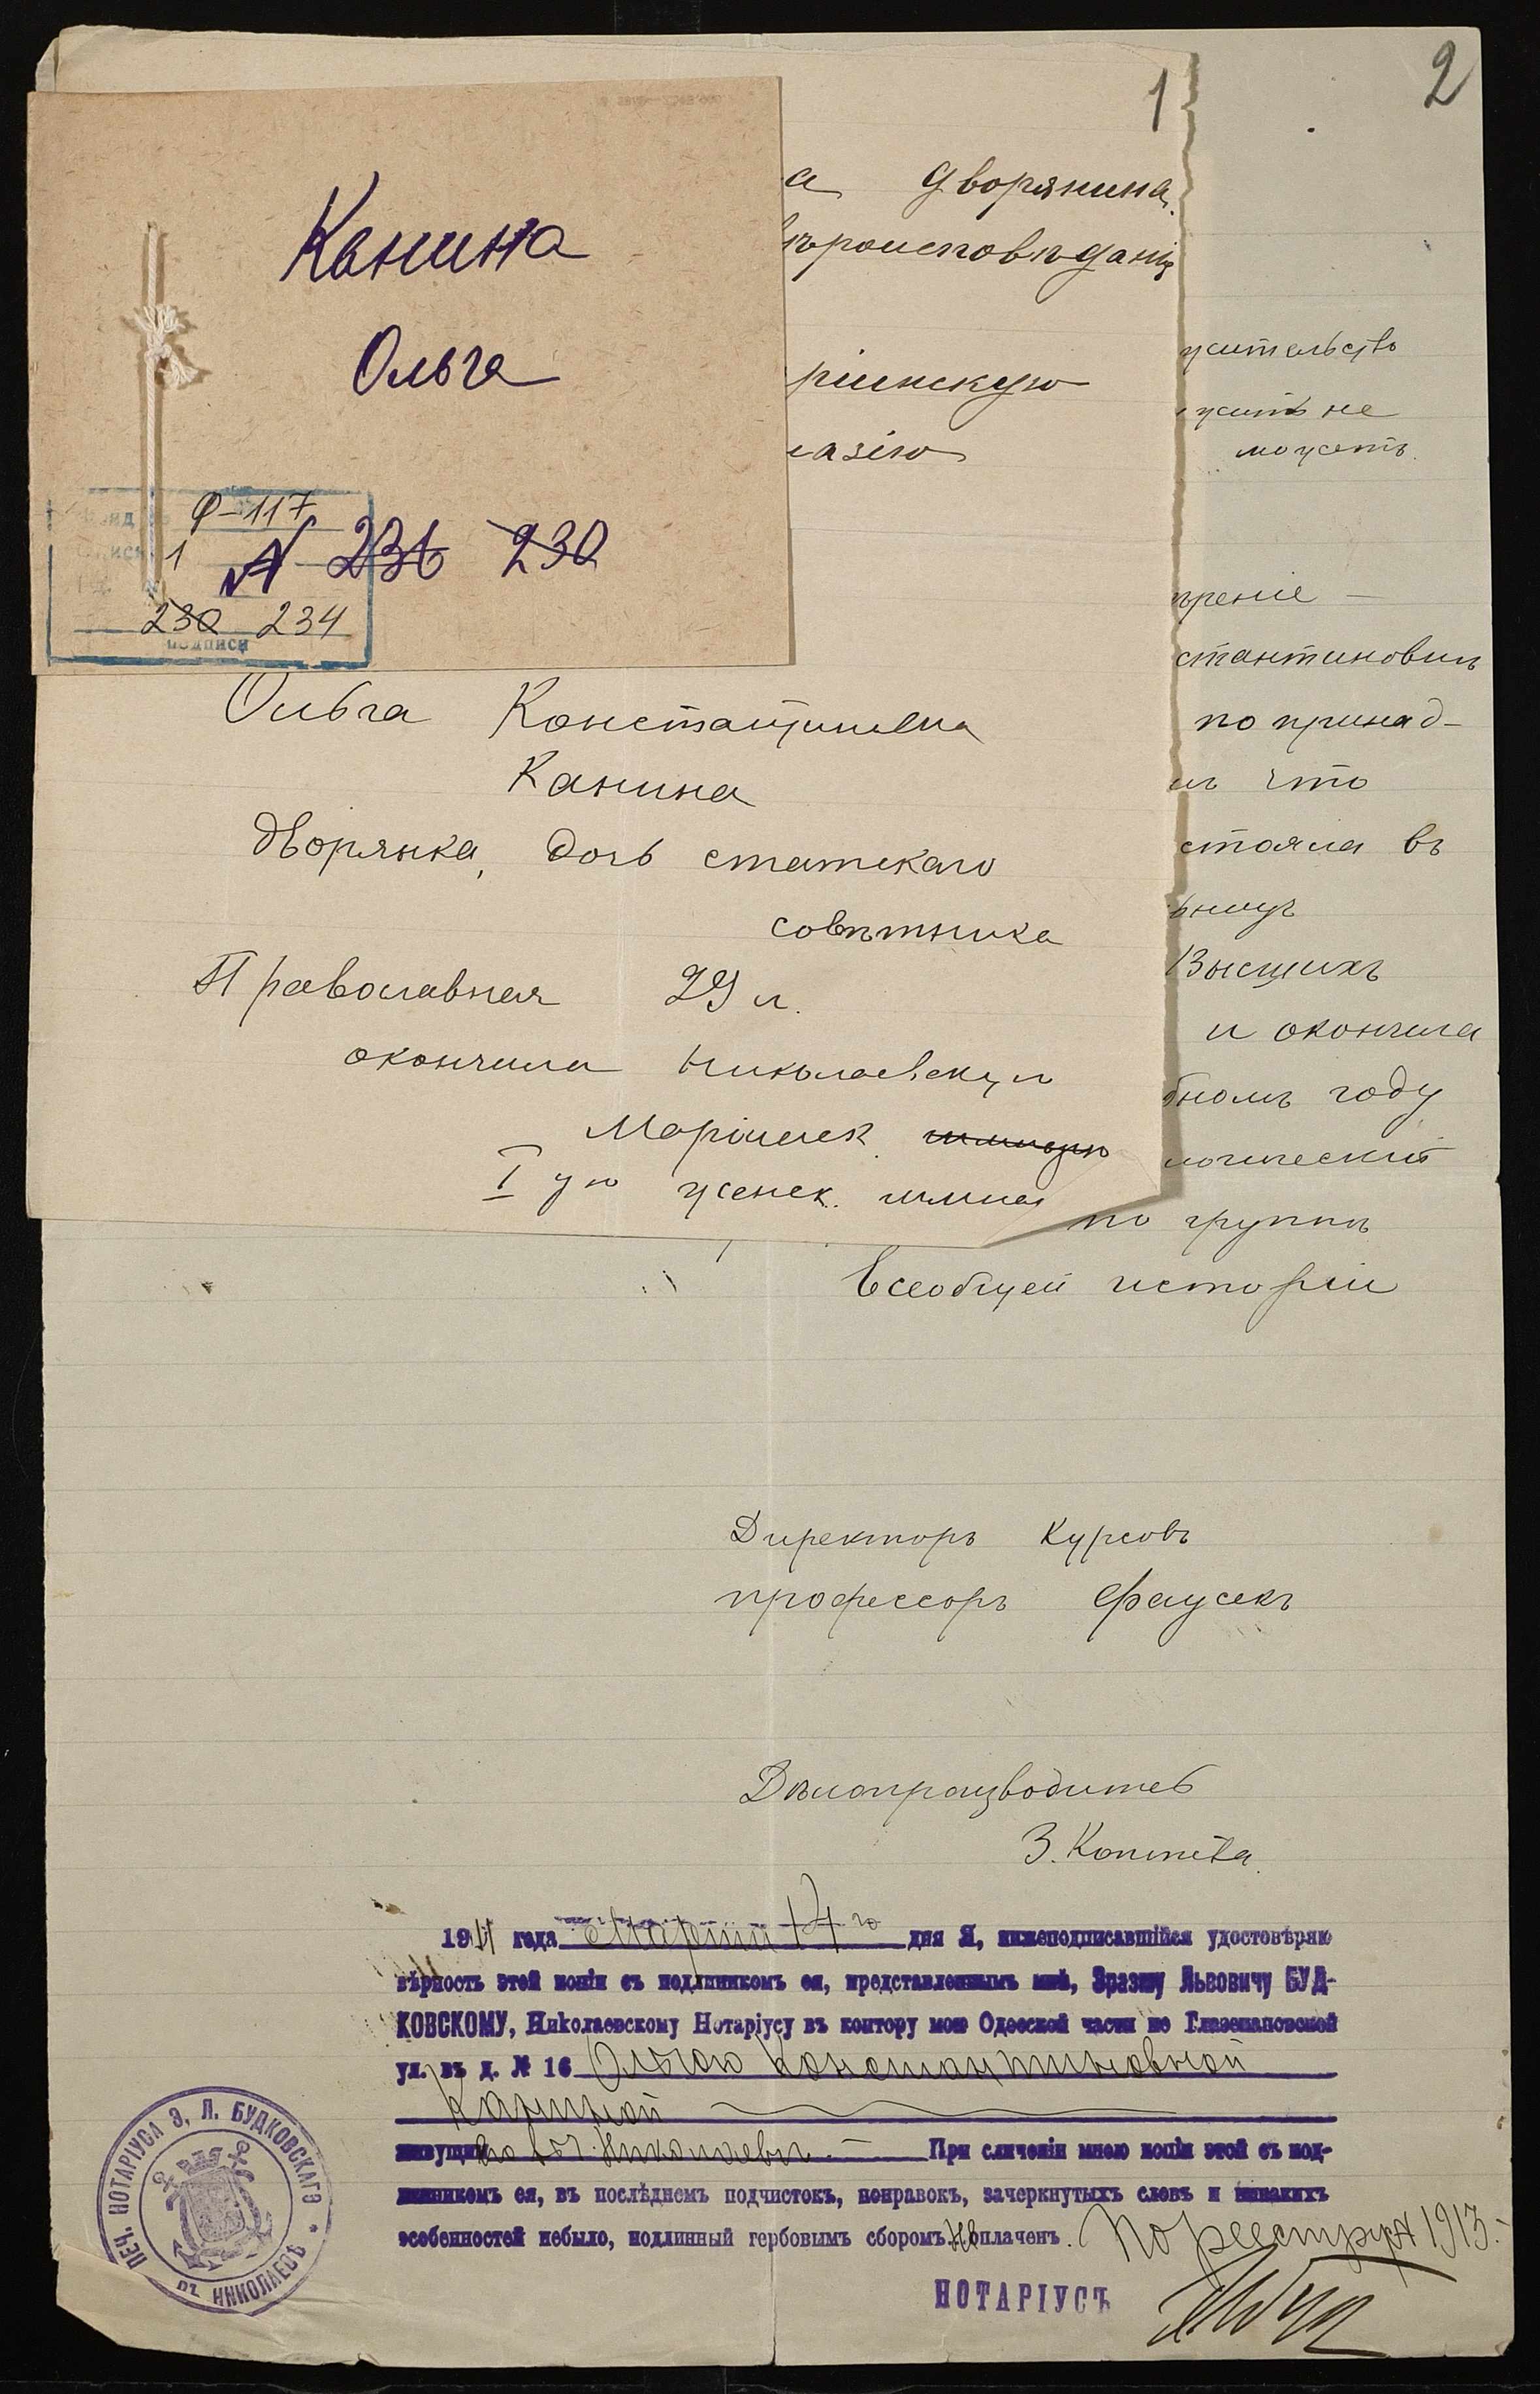 2
1
Канина
Ольга
Ф-117
1 № 236 230
230 234
подписи
а дворянина
вѣроисповѣданія
ріинскую
назію
Ольга Константиновна
Канина
дворянка, дочь статскаго
совѣтника
Православная 29 л.
окончила Николаевскую
Маріинск. гимназію
I ую женск. гимназ
жительство
жить не
можетъ.
ѣреніе —
стантиновнѣ
по принад-
что
стояла въ
Высшихъ
и окончила
бномъ году
логическій
по группѣ
Всеобщей исторіи
Директоръ Курсовъ
профессоръ Фаусекъ
Дѣлопроизводитель
З.
1911 года Марта 14го дня Я, нижеподписавшійся удостовѣряю
вѣрность этой копіи съ подлинникомъ ея, представленнымъ мнѣ, Эразму Львовичу БУД-
КОВСКОМУ, Николаевскому Нотаріусу въ контору мою Одесской части по Глазенаповской
ул. въ д. № 16 Ольгою Константиновной
Каниной
живущею въ г. Николаевѣ. — При сличеніи мною копіи этой съ под-
линникомъ ея, въ послѣднемъ подчистокъ, поправокъ, зачеркнутыхъ словъ и никакихъ
особенностей небыло, подлинный гербовымъ сборомъ не оплаченъ. По реестру № 1913.-
НОТАРІУСЪ
ПЕЧ. НОТАРІУСА Э. Л. БУДКОВСКАГО * ВЪ НИКОЛАЕВѢ